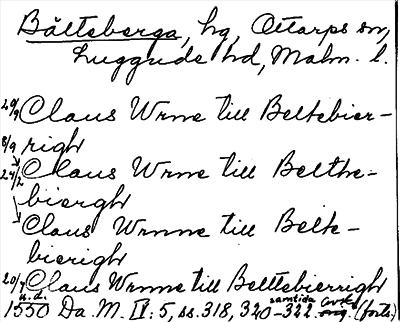 Bälteberga, hg, Ottarps sn,
Luggude hd, Malm. l.
20/9 Claus Wrne till Beltebier-
righ
8/9
24/2 Claus Wrne till Belthe-
biergh
Claus Wrnne till Belte-
bierigh
20/7 Claus Wrnne till Belttebierrigh
u.d.
1550 Da. M. II: 5, ss. 318, 320-322 samtida avskr. orig. (forts.)